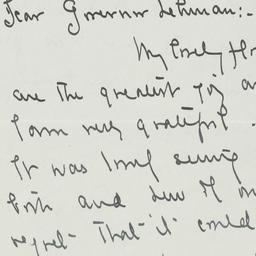 Dear Governor Lehman:-
My lovely
are the greatest joy
I am very grateful.
It was
both and
regret that it could